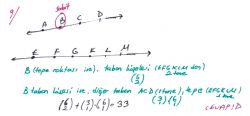 9/
sabit
A B C D
E F G K L M
B (tepe noktası ise), taban köşeleri (EFGKLM den)
2 tane
(6 2)
B taban köşesi ise, diğer taban ACD (1 tane), tepe (EFGKLM)
1 tane
(3 1) (6 1)
(6 2) + (3 1) · (6 1) = 33
CEVAP D